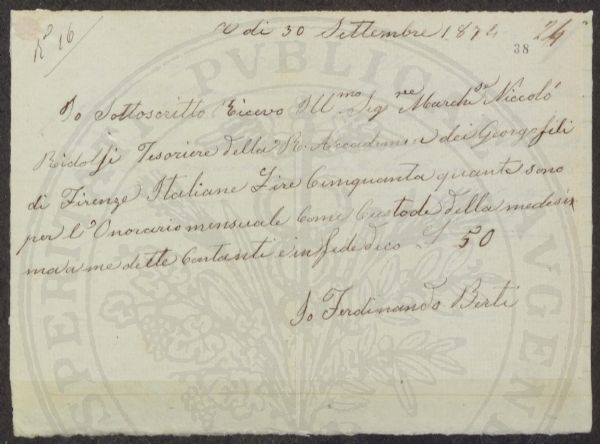 N.º 16
A di 30 Settembre 1874
24
38
Io Sottoscritto Ricevo Ill.mo Sig.re March.se Niccolò
Ridolfi Tesoriere della R. Accademia dei Georgofili
di Firenze Italiane Lire Cinquanta quante sono
per l'Onorario mensuale Come Custode della medesi
ma a me dette Contanti e in fede dico L 50
Io Ferdinando Berti
PUBLICAE
PROSPERITATI
AUGENDAE